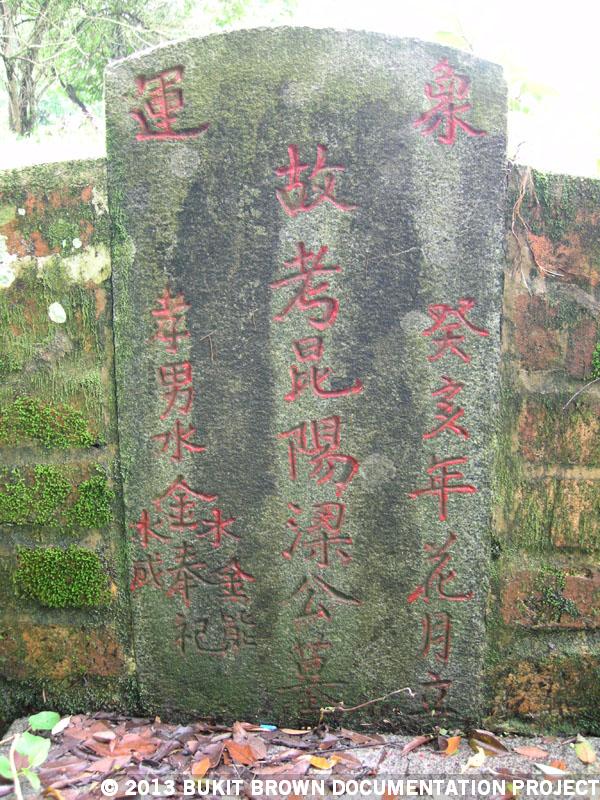 象運
癸亥年花月立
故考昆陽梁公墓
孝男水金奉祀
水金能
水成
© 2013 BUKIT BROWN DOCUMENTATION PROJECT